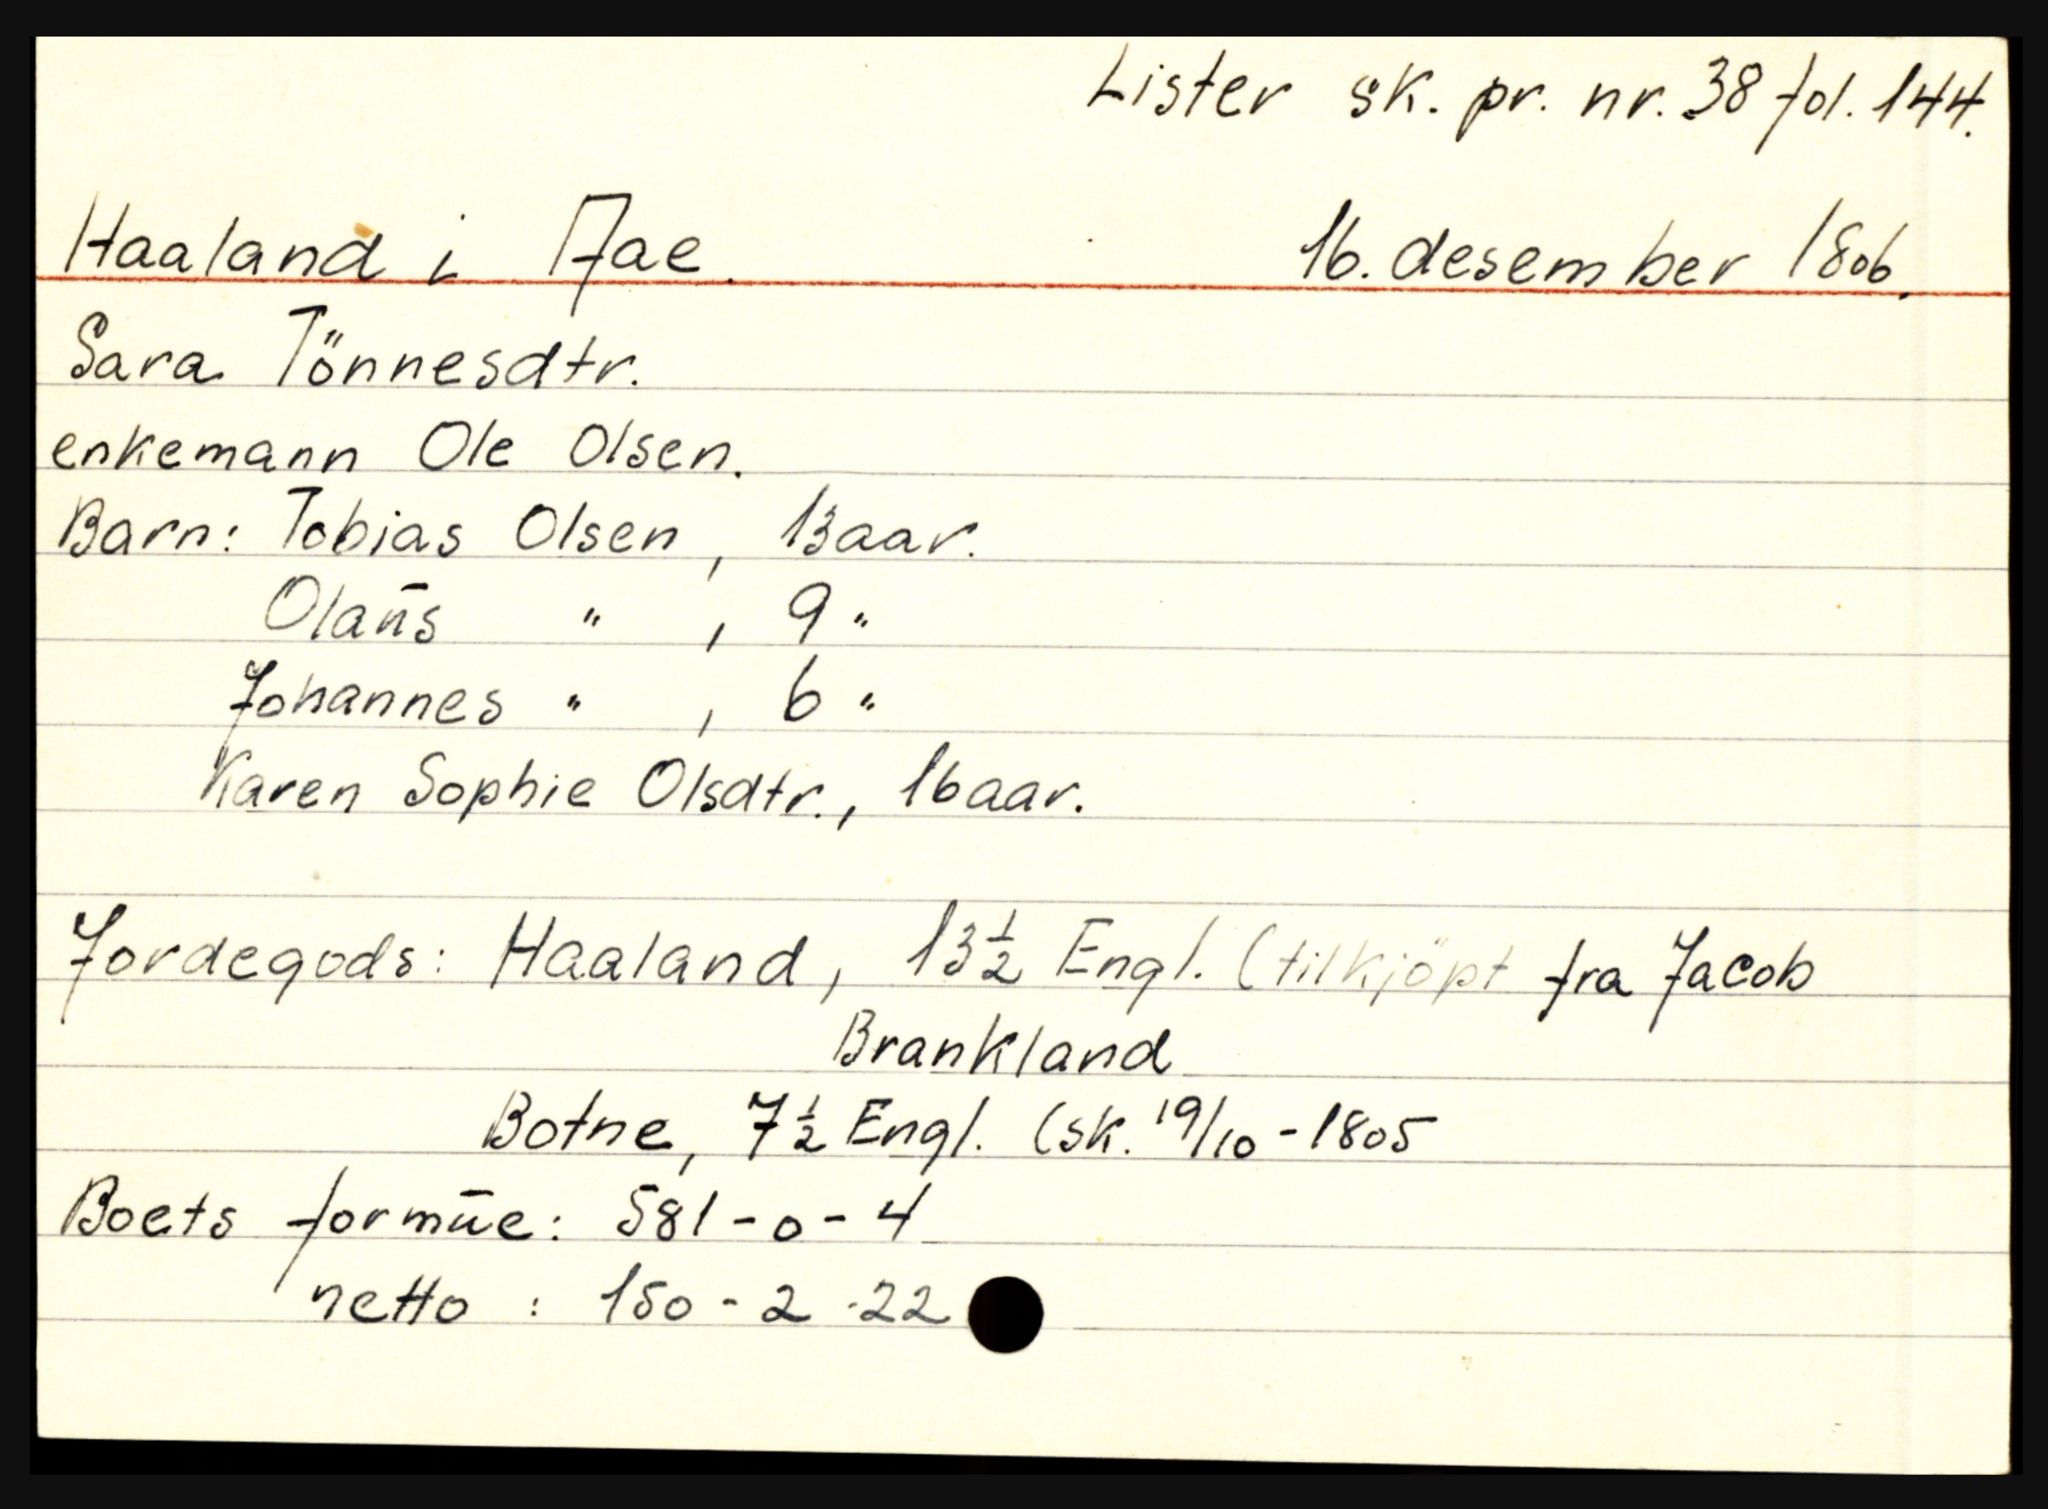 Lister sk. pr. nr. 38 fol. 144.
Haaland i 16. desember 1806.
Sara Tönnesdtr.
enkemann Ole Olsen.
Barn: Tobias Olsen, 13 aar.
Olaŭs " , 9 "
Johannes " , 6 "
Karen Sophie Olsdtr., 16 aar.
Jordegods: Haaland, 13½ Engl. (tilkjöpt fra Jacob
Brankland
Botne, 7½ Engl. (sk. 19/10-1805
Boets formūe: 581-0-4
netto : 150-2-22